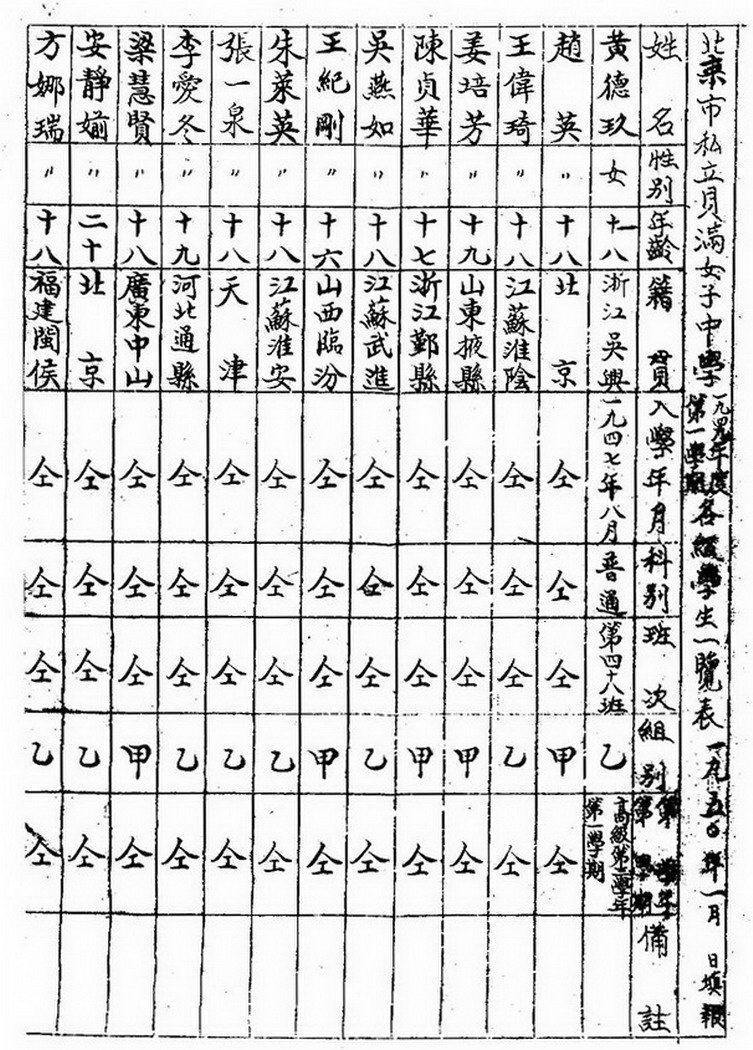 北京市私立貝滿女子中學一九四九年度第一學期各級學生一覽表 一九五〇年一月 日填報
姓名 性別 年齡 籍貫 入學年月 科別 班次 組別 第 學年第 學期 備註
黃德玖 女 十八 浙江吳興 一九四七年八月 普通 第四十八班 乙 高級第三學年第一學期
趙英 〃 十八 北京 仝 仝 仝 甲 仝
王偉琦 〃 十八 江蘇淮陰 仝 仝 仝 乙 仝
姜培芳 〃 十九 山東掖縣 仝 仝 仝 甲 仝
陳貞華 〃 十七 浙江鄞縣 仝 仝 仝 甲 仝
吳燕如 〃 十八 江蘇武進 仝 仝 仝 乙 仝
王紀剛 〃 十六 山西臨汾 仝 仝 仝 甲 仝
朱萊英 〃 十八 江蘇淮安 仝 仝 仝 乙 仝
張一泉 〃 十八 天津 仝 仝 仝 乙 仝
李愛冬 〃 十九 河北通縣 仝 仝 仝 乙 仝
梁慧賢 〃 十八 廣東中山 仝 仝 仝 甲 仝
安靜媊 〃 二十 北京 仝 仝 仝 乙 仝
方娜瑞 〃 十八 福建閩侯 仝 仝 仝 乙 仝